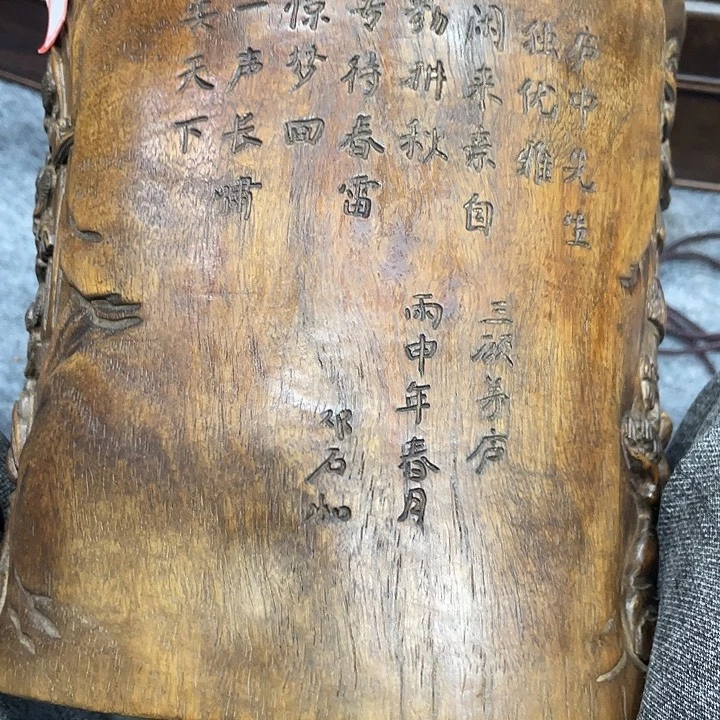 庐中先生
独优雅
闲来亲自
勤耕秋
专待春雷
惊梦回
一声长啸
安天下
三顾茅庐
雨申年春月
邓石如